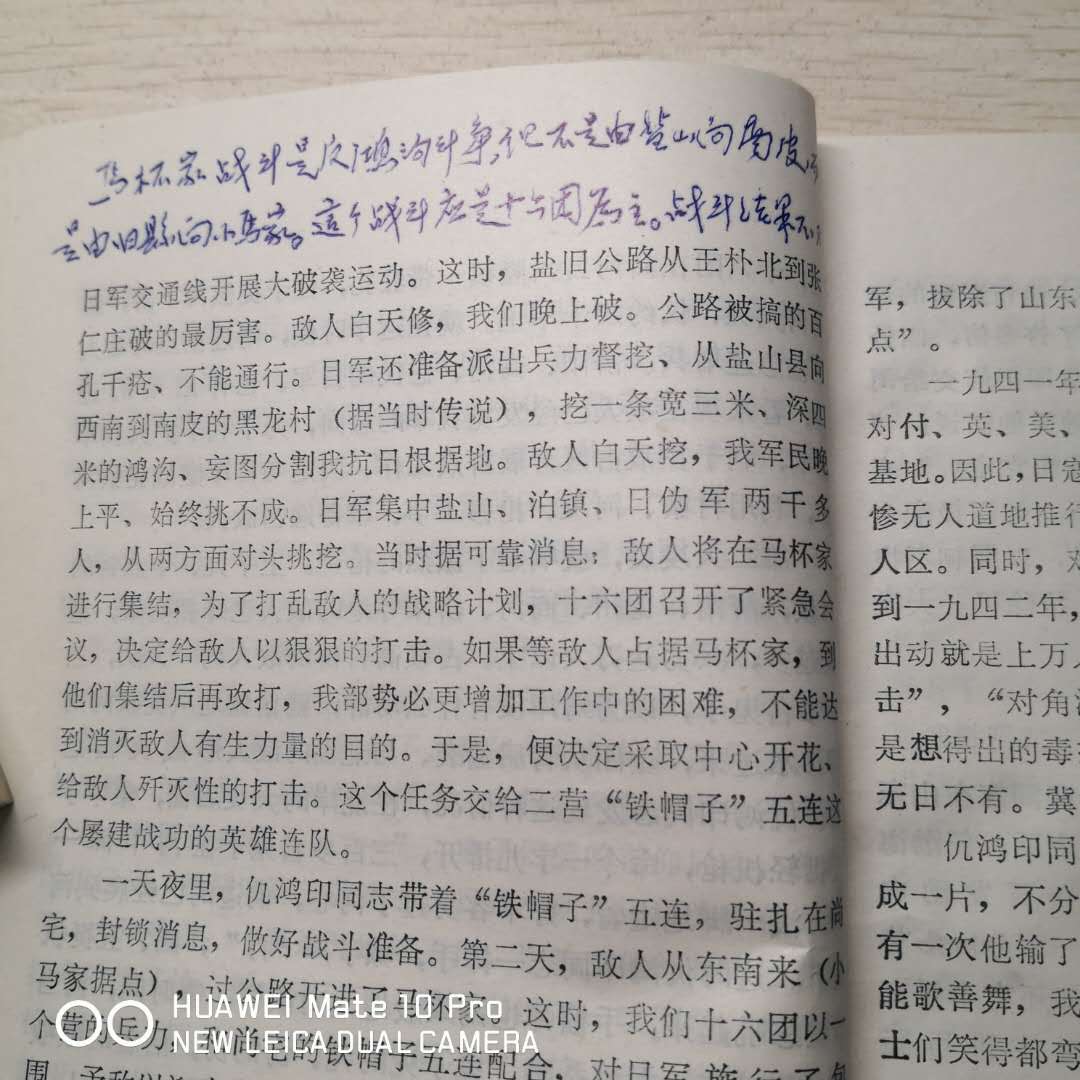 马杯家战斗是反鸿沟斗争,但不是由盐山向南皮
是由旧县向小马家。这个战斗应是十六团为主。战斗结果不
日军交通线开展大破袭运动。这时，盐旧公路从王朴北到张
仁庄破的最厉害。敌人白天修，我们晚上破。公路被搞的百
孔千疮、不能通行。日军还准备派出兵力督挖、从盐山县向
西南到南皮的黑龙村（据当时传说），挖一条宽三米、深四
米的鸿沟、妄图分割我抗日根据地。敌人白天挖，我军民晚
上平、始终挑不成。日军集中盐山、泊镇、日伪军两千多
人，从两方面对头挑挖。当时据可靠消息：敌人将在马杯家
进行集结，为了打乱敌人的战略计划，十六团召开了紧急会
议，决定给敌人以狠狠的打击。如果等敌人占据马杯家，到
他们集结后再攻打，我部势必更增加工作中的困难，不能达
到消灭敌人有生力量的目的。于是，便决定采取中心开花、
给敌人歼灭性的打击。这个任务交给二营“铁帽子”五连这
个屡建战功的英雄连队。
一天夜里，仉鸿印同志带着“铁帽子”五连，驻扎在尚
宅，封锁消息，做好战斗准备。第二天，敌人从东南来（小
马家据点），过公路开进了马杯家。这时，我们十六团以一
个营的兵力，和尚宅的铁帽子五连配合，对日军施行了包
围
军，拔除了山东
点”。
一九四一年
对付、英、美、
基地。因此，日寇
惨无人道地推行
人区。同时，对
到一九四二年，
出动就是上万人
击”，“对角
是想得出的毒
无日不有。冀
仉鸿印同
成一片，不分
有一次他输了
能歌善舞，我
士们笑得都弯
HUAWEI Mate 10 Pro
NEW LEICA DUAL CAMERA